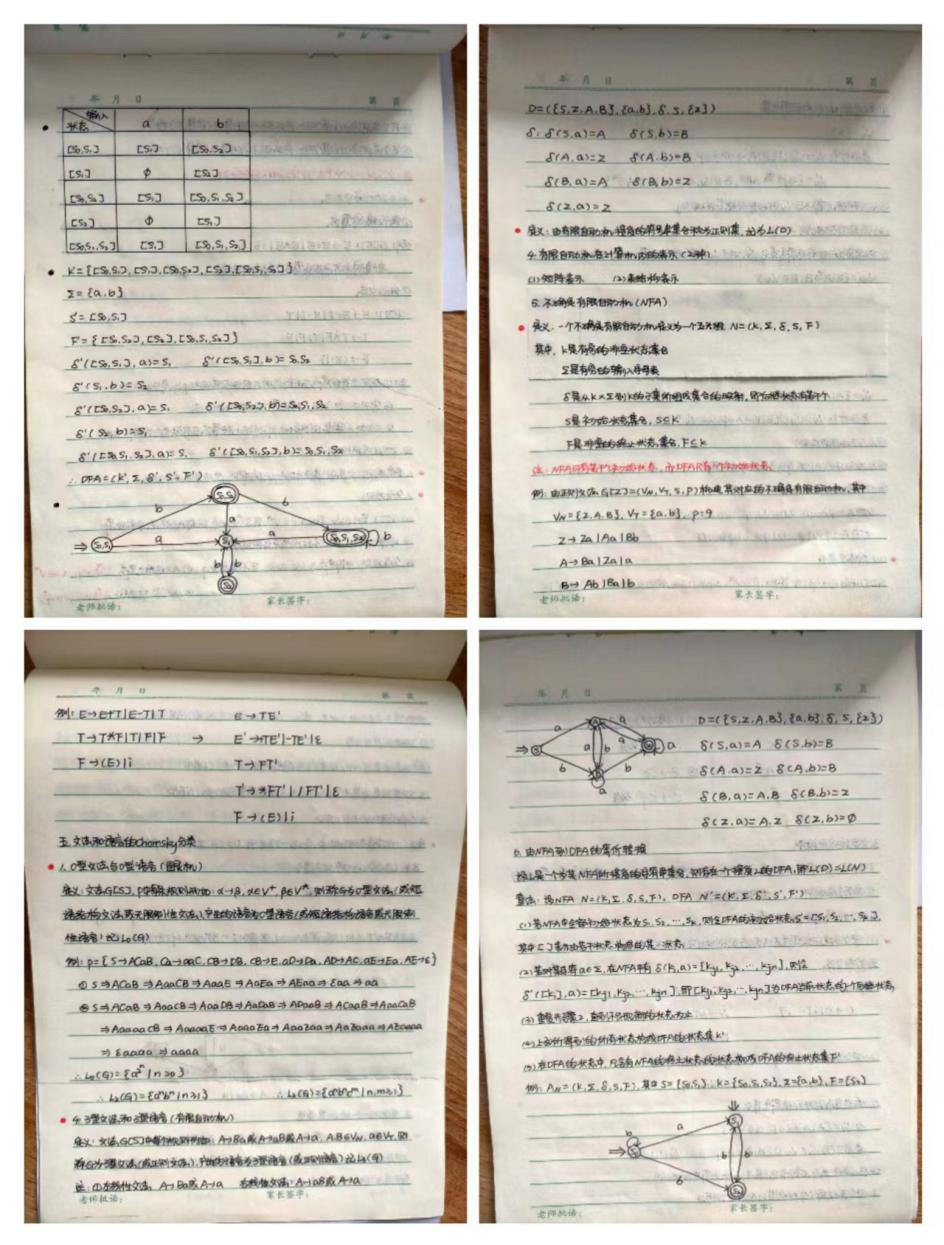 年 月 日 第 页
输入
状态 a b
[S₀,S₁] [S₁] [S₀,S₂]
[S₁] ϕ [S₂]
[S₀,S₂] [S₁] [S₀,S₁,S₂]
[S₂] ϕ [S₁]
[S₀,S₁,S₂] [S₁] [S₀,S₁,S₂]
K'={[S₀,S₁],[S₁],[S₀,S₂],[S₂],[S₀,S₁,S₂]}
Σ={a,b}
S'=[S₀,S₁]
F'={[S₀,S₂],[S₂],[S₀,S₁,S₂]}
δ'([S₀,S₁],a)=S₁ δ'([S₀,S₁],b)=S₀S₂
δ'(S₁,b)=S₂
δ'([S₀,S₂],a)=S₁ δ'([S₀,S₂],b)=S₀S₁,S₂
δ'(S₂,b)=S₁
δ'([S₀,S₁,S₂],a)=S₁ δ'([S₀,S₁,S₂],b)=S₀S₁,S₂
∴ DFA=(K',Σ,δ',S',F')
b b
a
a a b
b b
老师批语: 家长签字:
年 月 日 第 页
D=({S,Z,A,B},{a,b},δ,S,{Z})
δ: δ(S,a)=A δ(S,b)=B
δ(A,a)=Z δ(A,b)=B
δ(B,a)=A δ(B,b)=Z
δ(Z,a)=Z
定义:由有限自动机接受的符号串集合称为正则集,记为L(D)
4. 有限自动机在计算机内的表示(2种)
(1)矩阵表示 (2)表结构表示
5. 不确定有限自动机(NFA)
定义:一个不确定有限自动机定义为一个五元组 N=(K,Σ,δ,S,F)
其中, K是有穷的非空状态集合
Σ是有穷的输入字母表
S是初始状态集合, S⊆K
F是非空的终止状态集合, F⊆K
注: NFA可有若干个初始状态, 而DFA只有一个初始状态.
例: 由正则文法 G[Z]=(V_N,V_T,S,P)构造其对应的不确定有限自动机, 其中
V_N={Z,A,B}, V_T={a,b}, P:
Z→Za|Aa|Bb
A→Ba|Za|a
B→Ab|Ba|b
老师批语: 家长签字:
年 月 日 第 页
例: E→E+T|E-T|T E→TE'
T→T*F|T/F|F → E'→+TE'|-TE'|ε
F→(E)|i T→FT'
T'→*FT'|/FT'|ε
F→(E)|i
五. 文法和语言的Chomsky分类
1. 0型文法与0型语言(图灵机)
定义:文法G[S], P中每条规则形如: α→β, α∈V⁺, β∈V*, 则称G为0型文法(或短
语结构文法或无限制性文法), 产生的语言为0型语言(或短语结构语言或无限制
性语言)记L₀(G)
例: P={S→ACaB, Ca→aaC, CB→DB, CB→E, aD→Da, AD→AC, aE→Ea, AE→ε}
① S⇒ACaB⇒AaaCB⇒AaaE⇒AaEa⇒AEaa⇒εaa⇒aa
② S⇒ACaB⇒AaaCB⇒AaaDB⇒AaDaB⇒ADaaB⇒ACaaB⇒AaaCaB
⇒AaaaaCB⇒AaaaaE⇒AaaaEa⇒AaaEaa⇒AaEaaa⇒AEaaaa
⇒εaaaa⇒aaaa
∴ L₀(G)={a²ⁿ|n≥0}
∴ L₂(G)={aⁿbⁿ|n≥1} ∴ L₃(G)={aⁿbᵐ|n,m≥1}
4. 3型文法和3型语言(有限自动机)
定义: 文法G[S]中每个规则形如: A→Ba或A→aB或A→a, A,B∈V_N, a∈V_T, 则
称G为3型文法(或正则文法), 产生的语言为3型语言(或正则语言)记L₃(G)
注: ①左线性文法: A→Ba或A→a 右线性文法: A→aB或A→a
老师批语: 家长签字:
年 月 日 第 页
D=({S,Z,A,B},{a,b},δ,S,{Z})
δ(S,a)=A δ(S,b)=B
δ(A,a)=Z δ(A,b)=B
δ(B,a)=A,B δ(B,b)=Z
δ(Z,a)=A,Z δ(Z,b)=∅
6. 由NFA到DFA的等价转换
设L是一个为某NFA所接受的符号串集合, 则存在一个接受L的DFA, 即L(D)=L(N)
算法: 设NFA N=(K,Σ,δ,S,F), DFA N'=(K',Σ,δ',S',F')
(1)若NFA中全部初始状态为S₁,S₂,…,Sₖ, 则令DFA的初始状态S'=[S₁,S₂,…,Sₖ],
(3)重复步骤2, 直到不出现新的状态为止
(4)上面所得到的所有状态构成DFA的状态集K'
(5)在DFA的状态中, 凡含有NFA的终止状态的状态构成DFA的终止状态集F'
例: A_N=(K,Σ,δ,S,F), 其中S={S₀,S₁}, K={S₀,S₁,S₂}, Σ={a,b}, F={S₂}
b a
b b
b
老师批语: 家长签字: